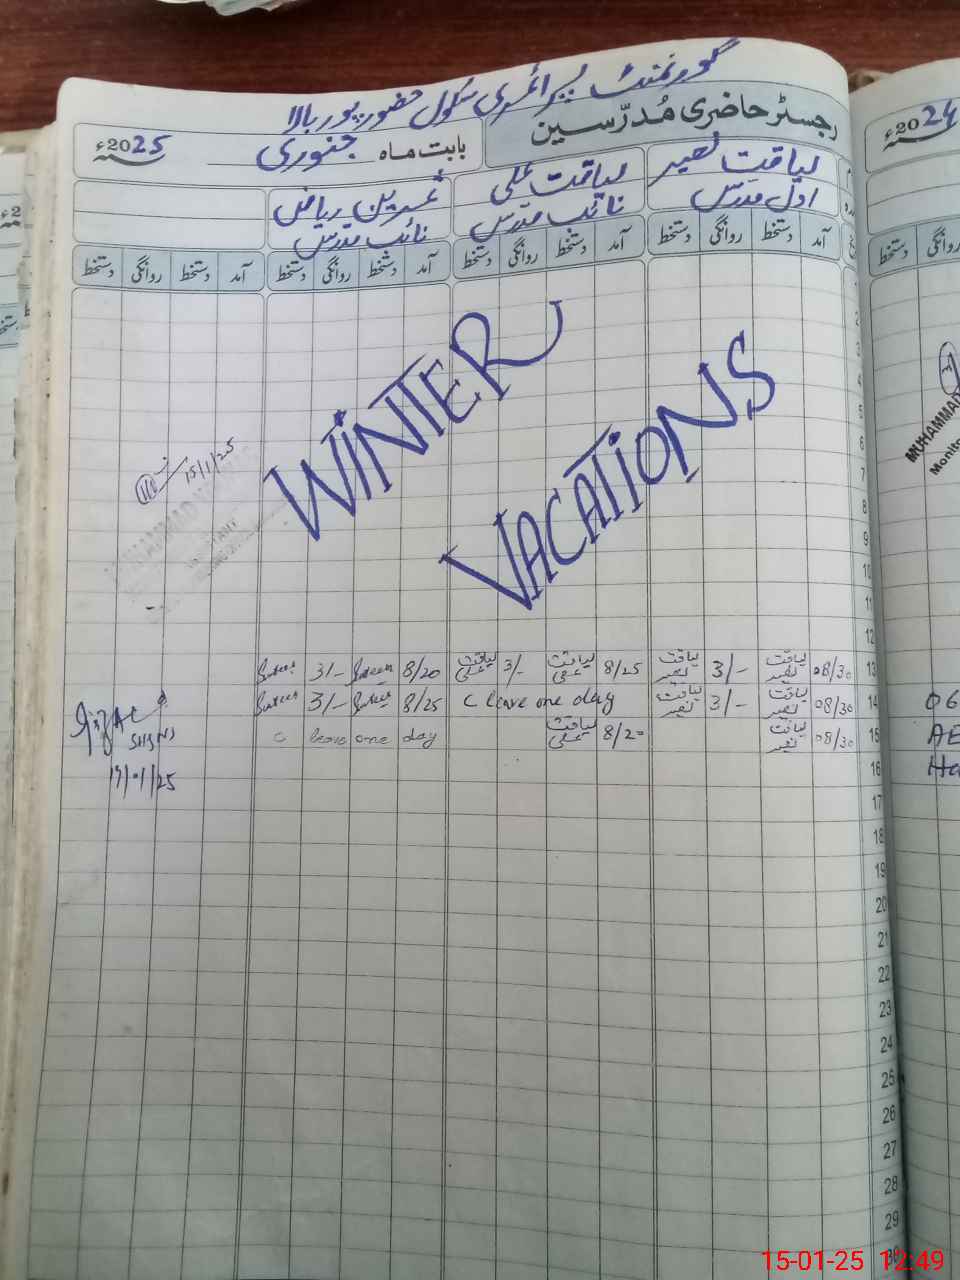 گورنمنٹ پرائمری سکول حضور پور بالا
رجسٹر حاضری مُدرّسین
بابت ماہ جنوری 2025ء
لیاقت نصیر لیاقت علی ثمرین ریاض
اول مدرس نائب مدرس نائب مدرس
آمد دستخط روانگی دستخط آمد دستخط روانگی دستخط آمد دستخط روانگی دستخط آمد دستخط روانگی دستخط
WINTER
VACATIONS
15/1/25
1
2
3
4
5
6
7
8
9
10
11
12
13 08/30 لیاقت نصیر 3/- لیاقت نصیر 8/25 لیاقت علی 3/- لیاقت علی 8/20 3/-
14 08/30 لیاقت نصیر 3/- لیاقت نصیر C leave one day 8/25 3/-
15 08/30 لیاقت نصیر 8/20 لیاقت علی C leave one day
16
17
18
19
20
21
22
23
24
25
26
27
28
29
30
2024ء
دستخط روانگی
MUHAMMAD
Monito
06
AE
15-01-25 12:49